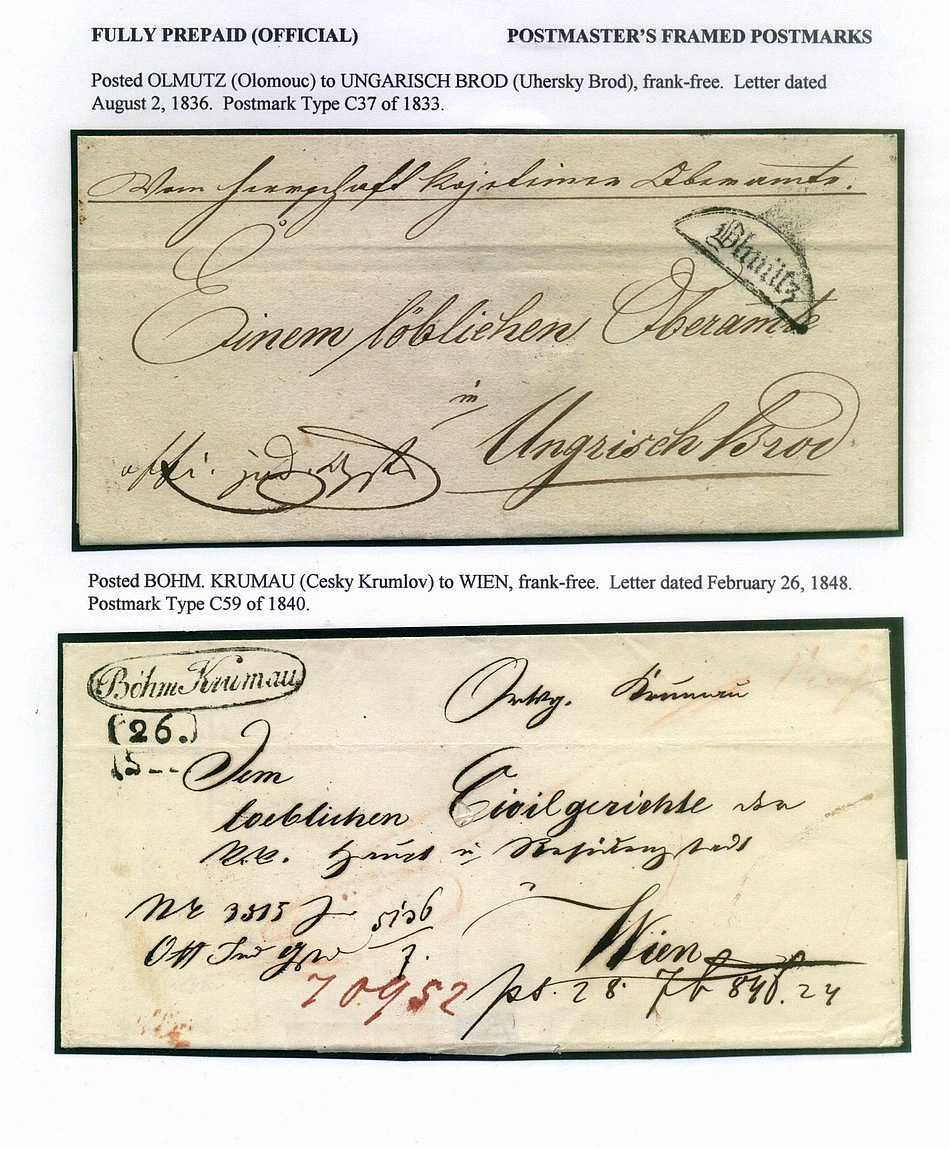 FULLY PREPAID (OFFICIAL)
POSTMASTER'S FRAMED POSTMARKS
Posted OLMUTZ (Olomouc) to UNGARISCH BROD (Uhersky Brod), frank-free. Letter dated
August 2, 1836. Postmark Type C37 of 1833.
Vom Herrschaft Kojeteiner Oberamte.
Olmütz
Einem löblichen Oberamte
in
Ungrisch Brod
Posted BOHM. KRUMAU (Cesky Krumlov) to WIEN, frank-free. Letter dated February 26, 1848.
Postmark Type C59 of 1840.
Böhm Krumau
26.
Krumau
Dem
loeblichen Civilgerichte der
k.k. Haupt u Residenzstadt
Wien
70952